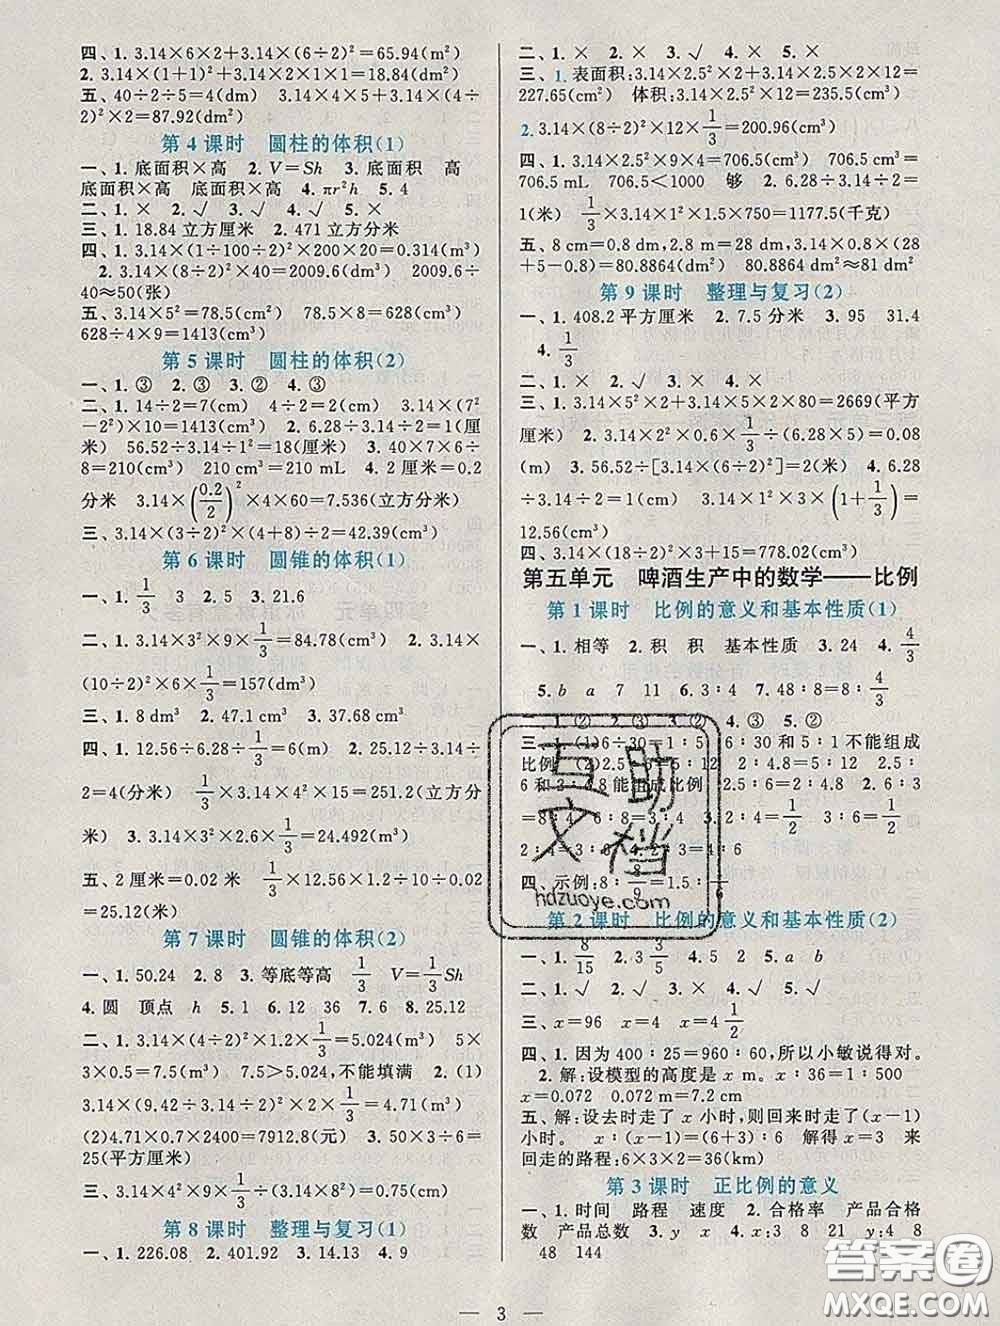 四、1. 3.14×6×2+3.14×(6÷2)²=65.94(m²)
2. 3.14×(1+1)²+3.14×2×1×1=18.84(dm²)
五、40÷2÷5=4(dm) 3.14×4×5+3.14×(4÷
2)²×2=87.92(dm²)
第 4 课时 圆柱的体积(1)
一、1. 底面积×高 2. V=Sh 3. 底面积 高
底面积×高 底面积×高 4. πr²h 5. 4
二、1. × 2. √ 3. √ 4. √ 5. ×
三、1. 18.84 立方厘米 2. 471 立方分米
四、1. 3.14×(1÷100÷2)²×200×20=0.314(m³)
2. 3.14×(8÷2)²×40=2009.6(dm³) 2009.6÷
40≈50(张)
五、3.14×5²=78.5(cm²) 78.5×8=628(cm³)
628÷4×9=1413(cm³)
第 5 课时 圆柱的体积(2)
一、1. ③ 2. ③ 3. ② 4. ③
二、1. 14÷2=7(cm) 4÷2=2(cm) 3.14×(7²
-2²)×10=1413(cm³) 2. 6.28÷3.14÷2=1(厘
米) 56.52÷3.14÷1²=18(厘米) 3. 40×7×6÷
8=210(cm³) 210 cm³=210 mL 4. 2 厘米=0.2
分米 3.14×(0.2/2)²×4×60=7.536(立方分米)
三、3.14×(3÷2)²×(4+8)÷2=42.39(cm³)
第 6 课时 圆锥的体积(1)
一、1. 1/3 3 2. 5 3. 21.6
二、1. 3.14×3²×9×1/3=84.78(cm³) 2. 3.14×
(10÷2)²×6×1/3=157(dm³)
三、1. 8 dm³ 2. 47.1 cm³ 3. 37.68 cm³
四、1. 12.56÷6.28÷1/3=6(m) 2. 25.12÷3.14÷
2=4(分米) 1/3×3.14×4²×15=251.2(立方分
米) 3. 3.14×3²×2.6×1/3=24.492(m³)
五、2 厘米=0.02 米 1/3×12.56×1.2÷10÷0.02
=25.12(米)
第 7 课时 圆锥的体积(2)
一、1. 50.24 2. 8 3. 等底等高 1/3 V=1/3Sh
4. 圆 顶点 h 5. 1 6. 12 36 7. 6 8. 25.12
二、1. 3.14×(4÷2)²×1.2×1/3=5.024(m³) 5×
3×0.5=7.5(m³) 7.5>5.024,不能填满 2. (1)
3.14×(9.42÷3.14÷2)²×2×1/3=4.71(m³)
(2)4.71×0.7×2400=7912.8(元) 3. 50×3÷6=
25(平方厘米)
三、3.14×4²×9×1/3÷(3.14×8²)=0.75(cm)
第 8 课时 整理与复习(1)
一、1. 226.08 2. 401.92 3. 14.13 4. 9
二、1. × 2. × 3. √ 4. × 5. ×
三、1. 表面积:3.14×2.5²×2+3.14×2.5×2×12=
227.65(cm²) 体积:3.14×2.5²×12=235.5(cm³)
2. 3.14×(8÷2)²×12×1/3=200.96(cm³)
四、1. 3.14×2.5²×9×4=706.5(cm³) 706.5 cm³=
706.5 mL 706.5<1000 够 2. 6.28÷3.14÷2=
1(米) 1/3×3.14×1²×1.5×750=1177.5(千克)
五、8 cm=0.8 dm, 2.8 m=28 dm, 3.14×0.8×(28
+5-0.8)=80.8864(dm²) 80.8864 dm²≈81 dm²
第 9 课时 整理与复习(2)
一、1. 408.2 平方厘米 2. 7.5 分米 3. 95 31.4
4. 1/3
二、1. × 2. × 3. × 4. ×
三、1. 3.14×5²×2+3.14×5×2×80=2669(平方
厘米) 2. 3.14×2²×0.6×1/3÷(6.28×5)=0.08
(m) 3. 56.52÷[3.14×(6÷2)²]=2(米) 4. 6.28
÷3.14÷2=1(cm) 3.14×1²×3×(1+1/3)=
12.56(cm³)
四、3.14×(18÷2)²×3+15=778.02(cm³)
第五单元 啤酒生产中的数学——比例
第 1 课时 比例的意义和基本性质(1)
一、1. 相等 2. 积 积 基本性质 3. 24 4. 4/3
5. b a 7 11 6. 3∶4 7. 48∶8=8∶4/3
二、1. ② 2. ③ 3. ② 4. ③ 5. ②
三、1. (1)6÷30=1∶5 6∶30 和 5∶1 不能组成
比例 (2)2.5∶6=5∶12 2∶4.8=5∶12 2.5∶
6 和 2∶4.8 能组成比例 2. 6∶4.5=8∶6 4∶
3=8∶6 8∶6=4∶3 3. 2∶4=1/2 3∶6=1/2
2∶4=3∶6 4. 2∶3=4∶6
四、示例:8∶8/9=1.5∶1/6
第 2 课时 比例的意义和基本性质(2)
一、1. 8/15 2. 3 3/5 3. 6 4. 5 2 5. a b
二、1. √ 2. √ 3. × 4. √ 5. √
三、x=96 x=4 x=4 1/2
四、1. 因为 400∶25=960∶60,所以小敏说得对。
2. 解:设模型的高度是 x m。 x∶36=1∶500
x=0.072 0.072 m=7.2 cm
五、解:设去时走了 x 小时,则回来时走了(x-1)
小时。 x∶(x-1)=(6+3)∶6 解得 x=3 来
回走的路程:6×3×2=36(km)
第 3 课时 正比例的意义
一、1. 时间 路程 速度 2. 合格率 产品合格
数 产品总数 3. y x 4. x:3 8 21 y:4 8
48 144
互助文档
hdzuoye.com
答案圈
MXQE.COM
3